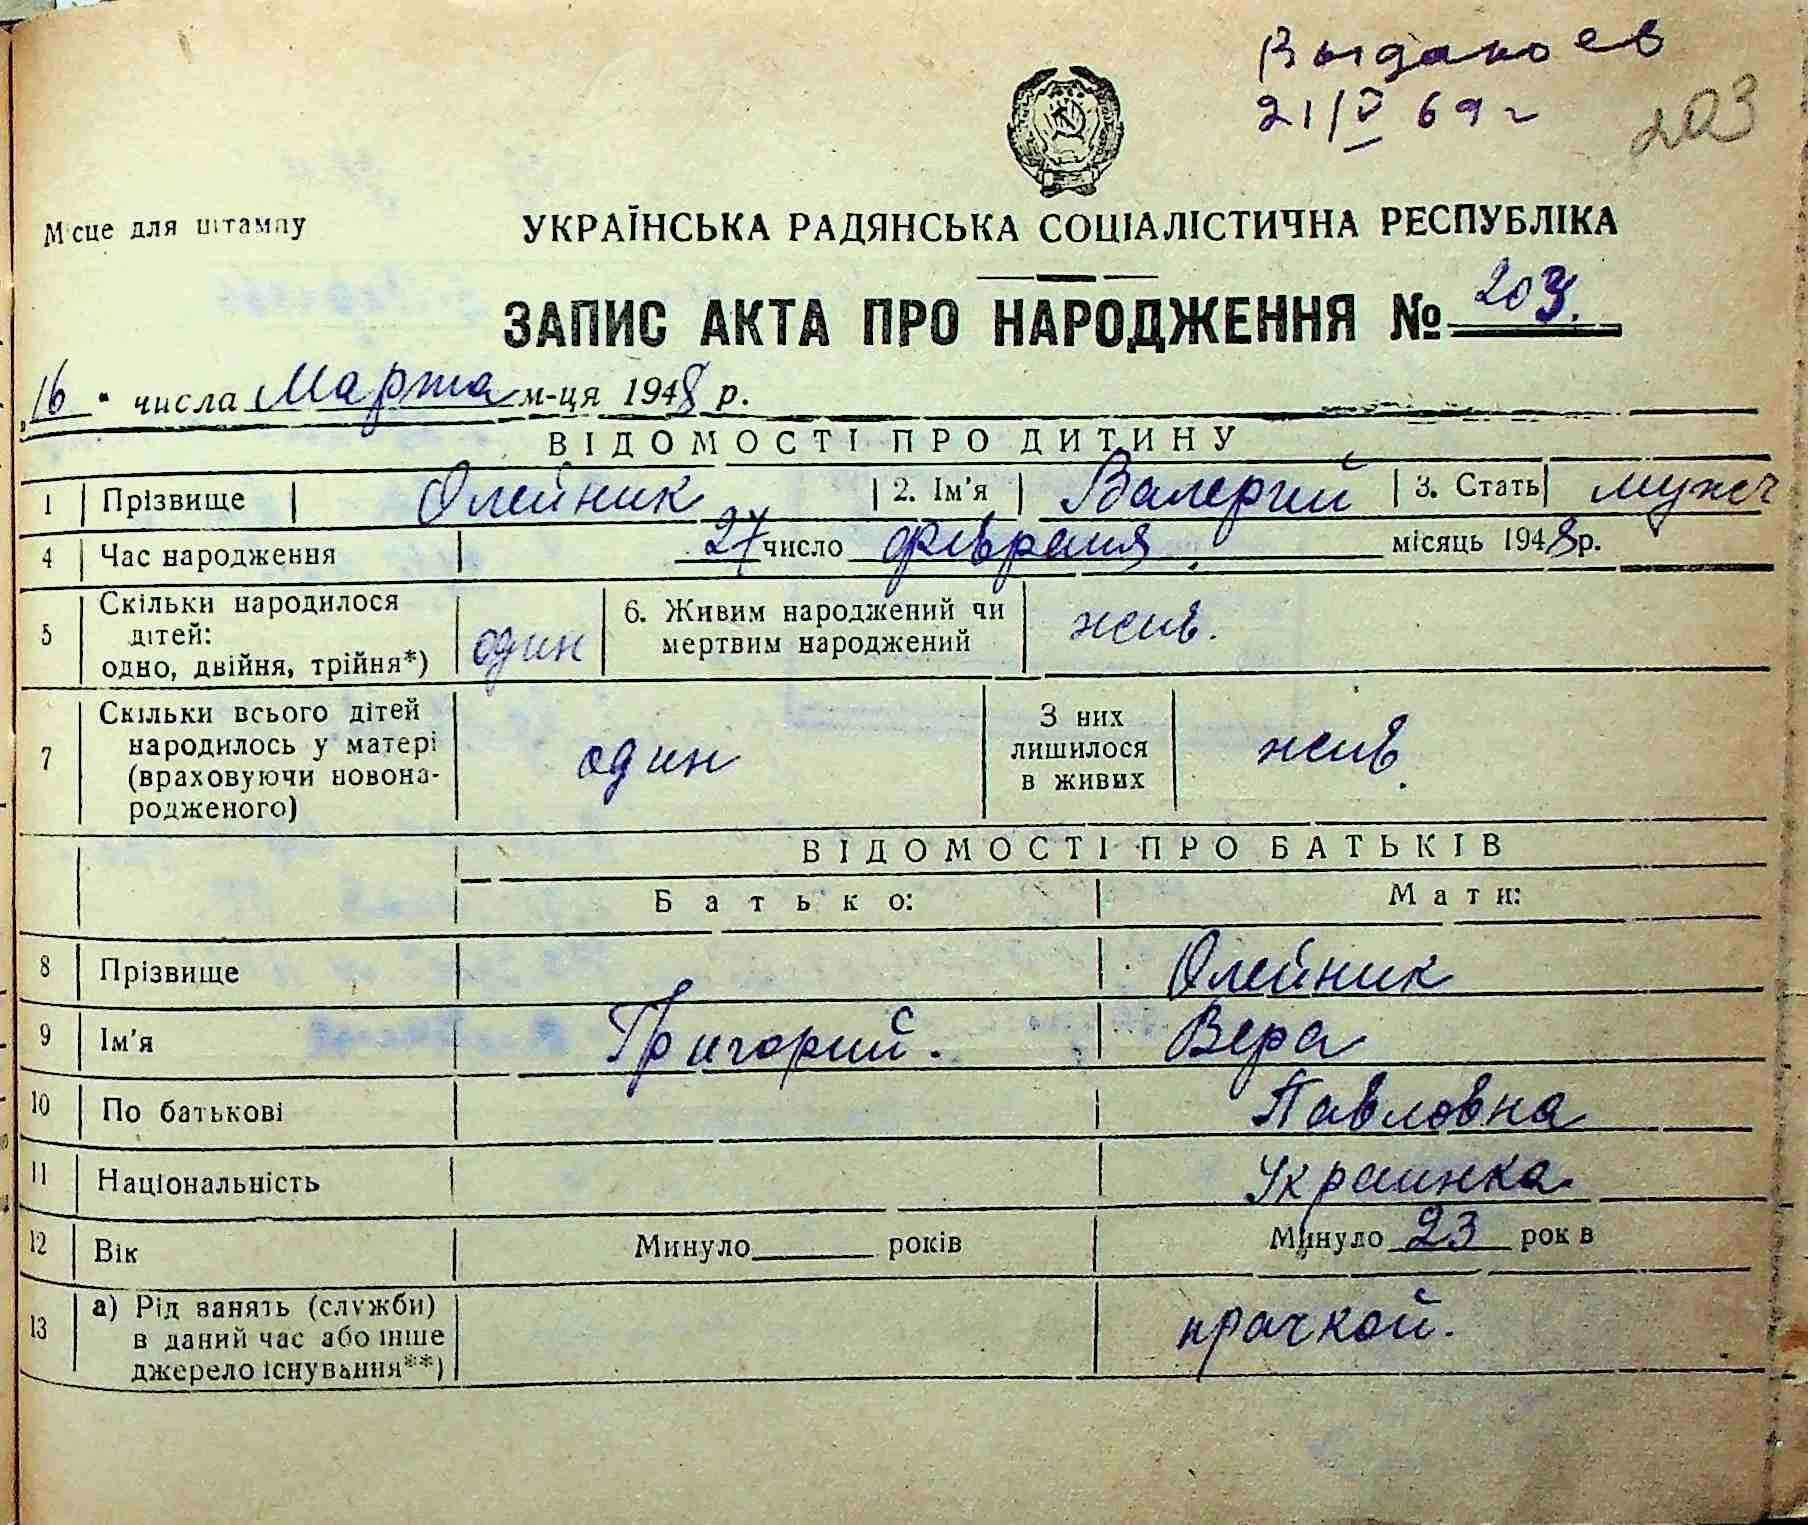 Выдано св
21/V 69 г
203
Місце для штампу
УКРАЇНСЬКА РАДЯНСЬКА СОЦІАЛІСТИЧНА РЕСПУБЛІКА
ЗАПИС АКТА ПРО НАРОДЖЕННЯ № 203.
„16" числа Марта м-ця 1948 р.
ВІДОМОСТІ ПРО ДИТИНУ
1 Прізвище Олейник 2. Ім'я Валерий 3. Стать мужч
4 Час народження 27 число февраля місяць 1948 р.
5 Скільки народилося дітей: одно, двійня, трійня*) один 6. Живим народжений чи мертвим народжений жив.
7 Скільки всього дітей народилось у матері (враховуючи новонародженого) один З них лишилося в живих жив.
ВІДОМОСТІ ПРО БАТЬКІВ
Батько: Мати:
8 Прізвище Олейник
9 Ім'я Григорий. Вера
10 По батькові Павловна
11 Національність Украинка
12 Вік Минуло років Минуло 23 років
13 а) Рід занять (служби) в даний час або інше джерело існування**) прачкой.